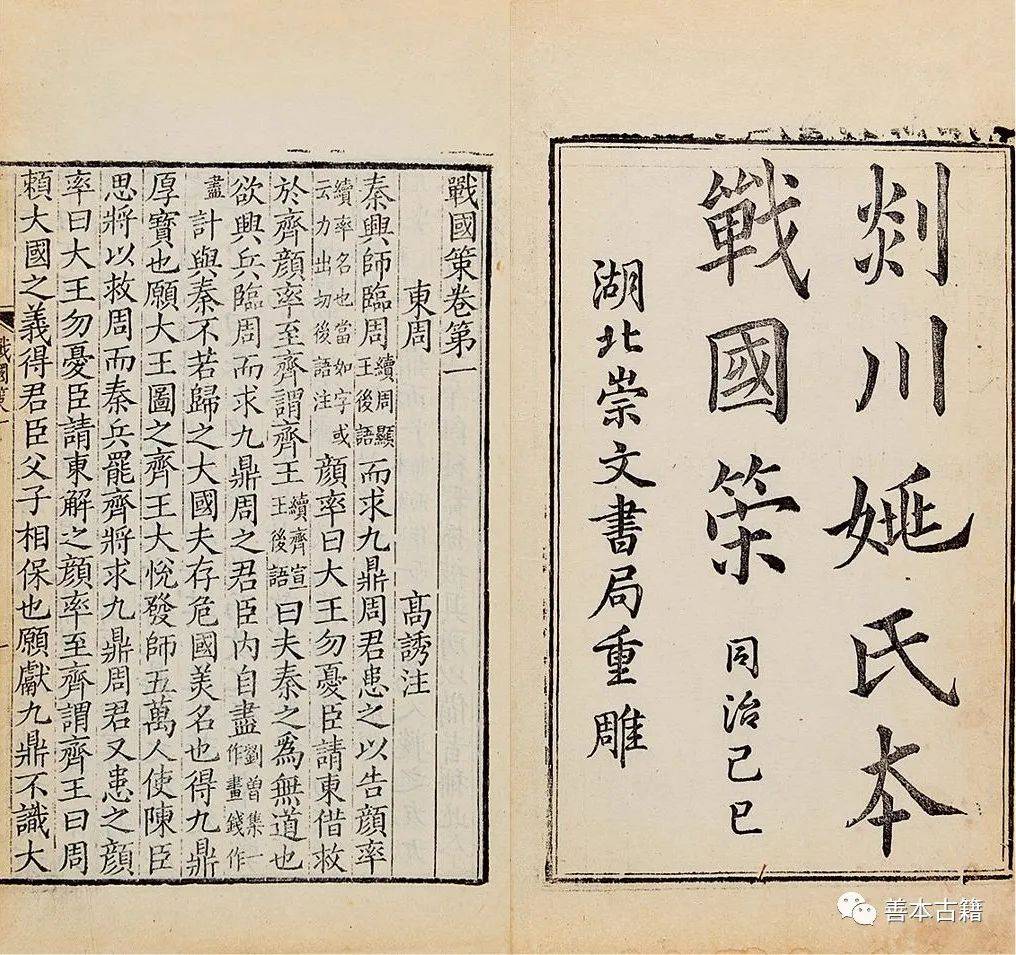 剡川姚氏本
戰國策 同治己巳
湖北崇文書局重雕
戰國策卷第一
東周 高誘注
秦興師臨周續周顯王後語而求九鼎周君患之以告顔率
續率名也當如字或云力出切後語注顔率曰大王勿憂臣請東借救
於齊顔率至齊謂齊王續齊宣王後語曰夫秦之爲無道也
欲興兵臨周而求九鼎周之君臣内自盡劉曾集一作畫錢作
盡計與秦不若歸之大國夫存危國美名也得九鼎
厚寶也願大王圖之齊王大悅發師五萬人使陳臣
思將以救周而秦兵罷齊將求九鼎周君又患之顔
率曰大王勿憂臣請東解之顔率至齊謂齊王曰周
賴大國之義得君臣父子相保也願獻九鼎不識大
戰國策一
善本古籍